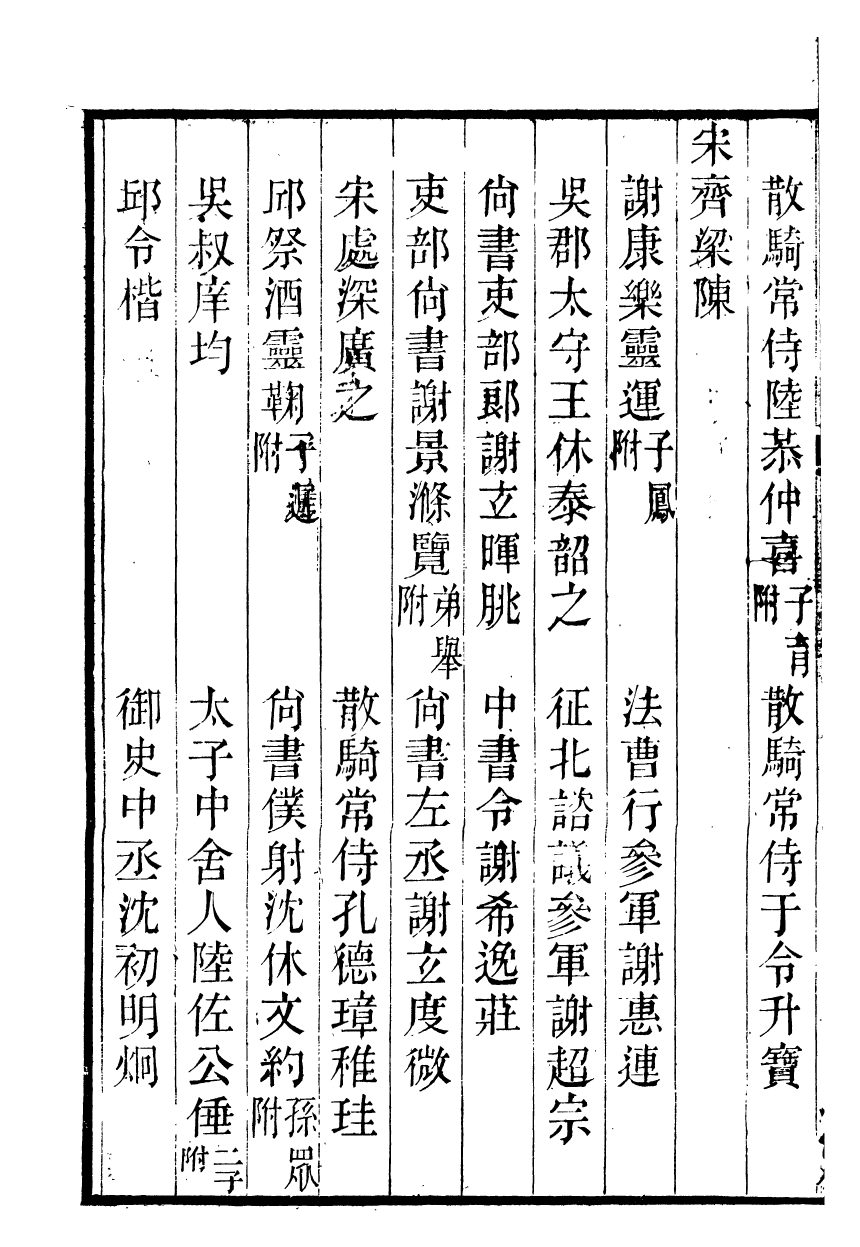 散騎常侍陸恭仲喜子育附　散騎常侍于令升寶
宋齊梁陳
謝康樂靈運子鳳附　法曹行參軍謝惠連
吳郡太守王休泰韶之　征北諮議參軍謝超宗
尙書吏部郞謝玄暉朓　中書令謝希逸莊
吏部尙書謝景滌覽弟舉附　尙書左丞謝玄度微
宋處深廣之　散騎常侍孔德璋稚珪
邱祭酒靈鞠子遲附　尙書僕射沈休文約孫眾附
吳叔庠均　太子中舍人陸佐公倕二子附
邱令楷　御史中丞沈初明炯